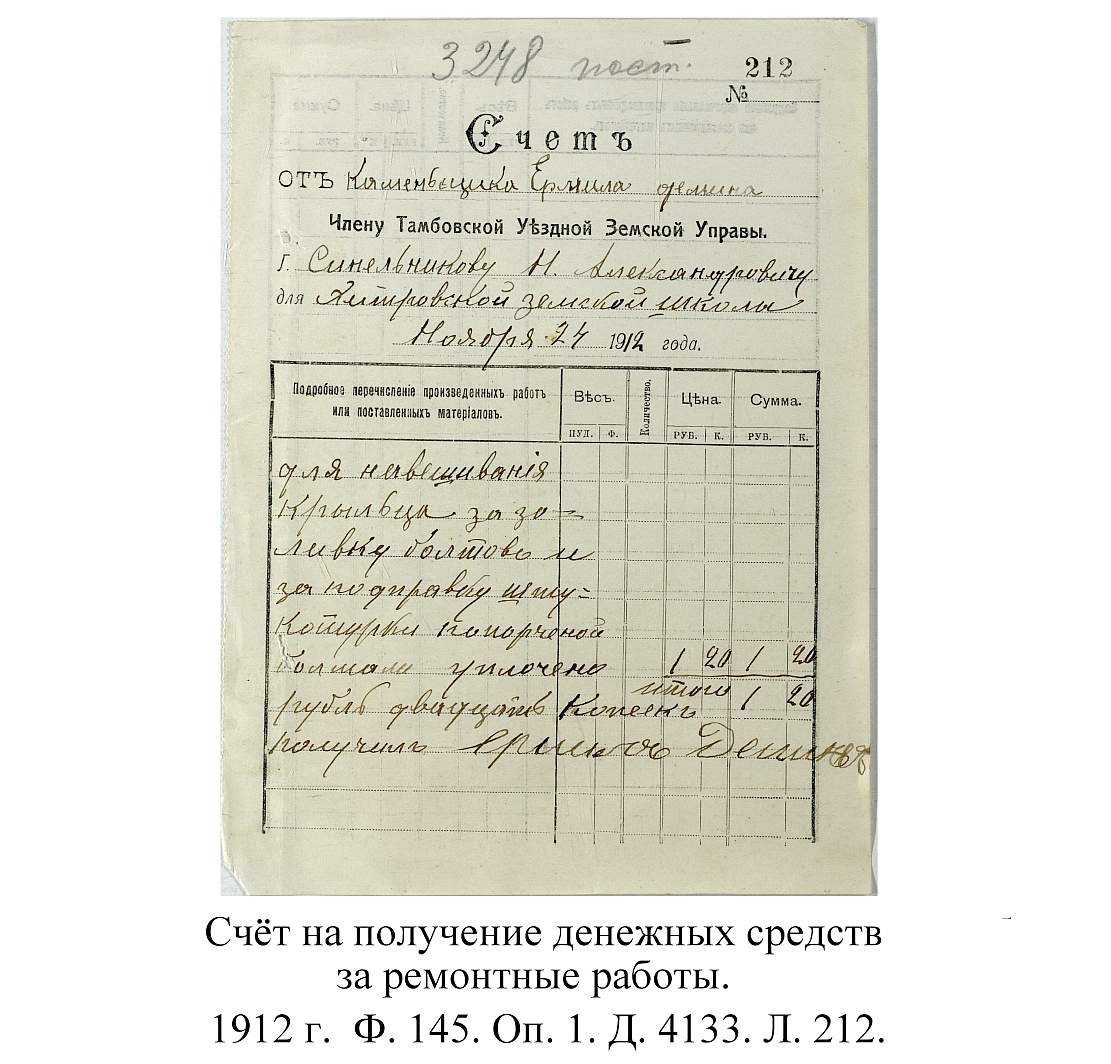 3248 пост.
212
№
Счетъ
ОТЪ Каменьщика Ермила демина
Члену Тамбовской Уѣздной Земской Управы.
г. Синельникову Н. Александровичу
для Хитровской земской школы
Ноября 24 1912 года.
Подробное перечисленіе произведенныхъ работъ или поставленныхъ матеріаловъ. Вѣсъ. Количество. Цѣна. Сумма.
ПУД. Ф. РУБ. К. РУБ. К.
для навешиванія
крыльца за за=
ливку болтовъ и
за подправку шту=
котурки попорченой
болтами уплочено 1 20 1 20
итого 1 20
рубль двадцать копеекъ
получилъ Деминъ
Счёт на получение денежных средств
за ремонтные работы.
1912 г. Ф. 145. Оп. 1. Д. 4133. Л. 212.